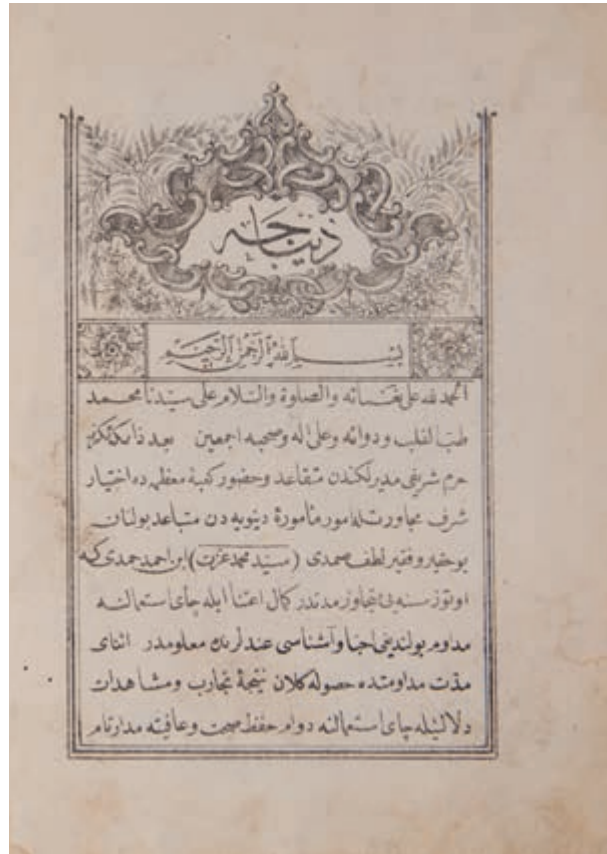 ديباجه
بسم الله الرحمن الرحيم
الحمد لله على نعمائه والصلوة والسلام على سيدنا محمد
طب القلب ودوائه وعلى اله وصحبه اجمعين بعد ذا
حرم شريفى مديرلكندن متقاعد وحضور كعبۀ معظمه ده اختيار
شرف مجاورتله امور مأمورۀ دنيويه دن متباعد بولنان
بو حقير و فقير لطف صمدى (سيد محمد عزت) ابن احمد حمدى كه
اوتوز سنه يى متجاوز مدتدر كمال اعتنا ايله چاى استعمالنه
مداوم بولنديغى احبا وآشناسى عندلرنده معلومدر اثناى
مدت مداومتده حصوله كلان نتيجۀ تجارب ومشاهدات
دلالتيله چاى استعمالنه دوام حفظ صحت وعافيته مدار تام